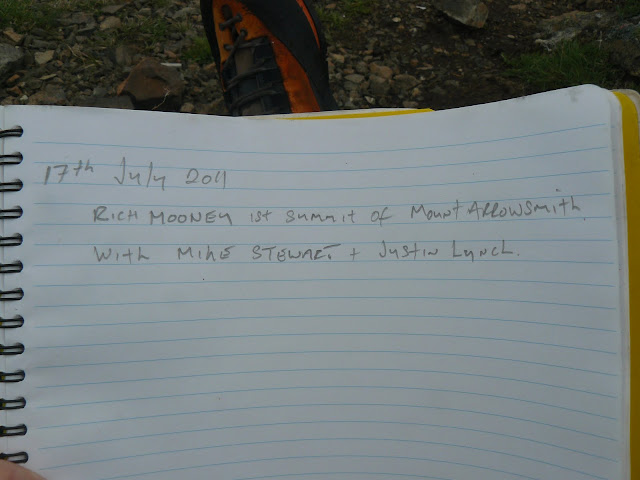 17th July 2011
RICH MOONEY 1st Summit of Mount ARROWSMITH.
With MIKE STEWART + Justin Lynch.